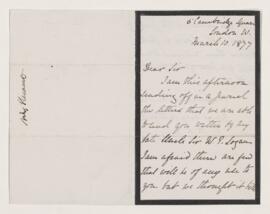 6 Cambridge Square
London W.
March 10. 1877
Dear Sir
I am this afternoon
sending off in a parcel
the letters that we are able
to send you written by my
late Uncle Sir W. E. Logan
I am afraid there are few
that will be of any use to
you but we thought it